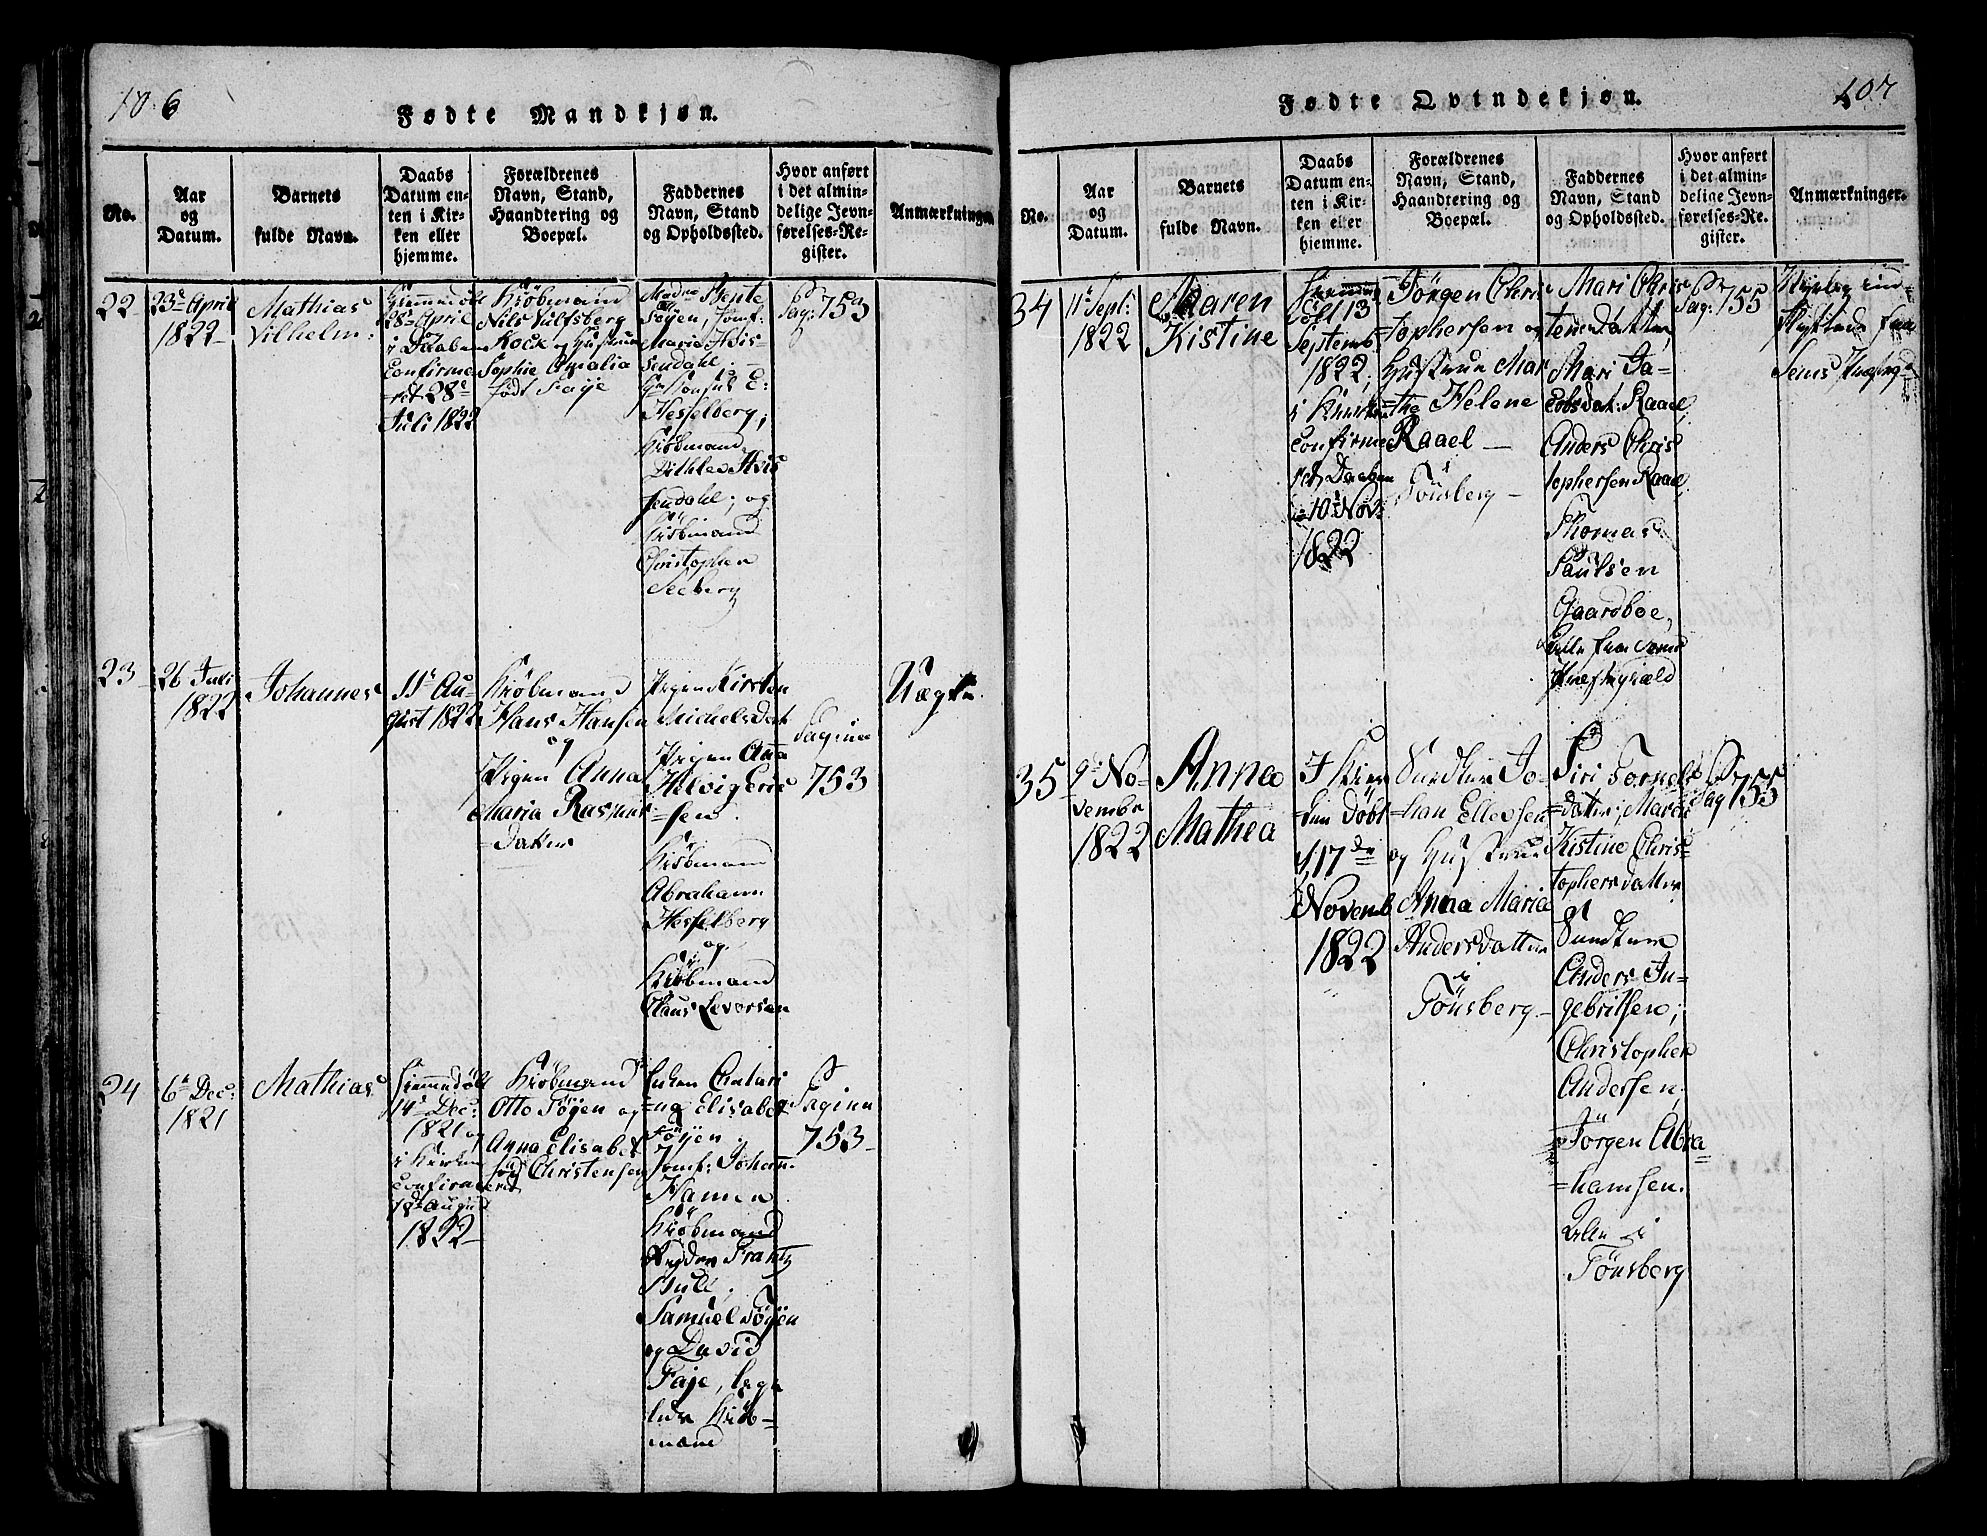 106
Fødte Mandkjøn.
No.
Aar
og
Datum.
Barnets
fulde Navn.
Daabs
Datum en-
ten i Kir-
ken eller
hjemme.
Forældrenes
Navn, Stand,
Haandtering og
Boepæl.
Faddernes
Navn, Stand
og Opholdssted.
Hvor anført
i det almin-
delige Jevn-
førelses-Re-
gister.
Anmærkninge
22
23de April
1822
Mathias
Vilhelm
Hiemmedøbt
28de April
i Daaben
Confirme
ret 28de
Juli 1822
Kiøbmand
Nils Vulfsberg
Kock og Hustrue
Sophie Amalia
født Faye
Madme
Føÿen, Jomf:
Maria
Sendahl
E:
Hesselberg;
Kiøbmand
Dithlev
sendahl; og
Kiøbmand
Christopher
Seeberg
Pag: 753
23
26 Juli
1822
Johannes
11te Au-
gust 1822
Kiøbmand
Hans Hansen
og
Pigen Anna
Maria Rasmus
=datter
Pigen Kirsten
Michelsdat
Pigen Anna
Helvig Eric
=sen
Kiøbmand
Abraham
Hesselberg
og
Kiøbmand
Claus Levorsen
Pagina
753
Uægte
24
6te Dec:
1821
Mathias
Hiemmedøbt
14de Dec:
1821 og
i Kirken
Confirme
ret
August
1822
Kiøbmand
Otto Føÿen og
Anna Elisabet
fød Christensen
Enken Chatari
=na Elisabet
Føÿen
Jomf: Johan
Hannen
Kiøbmand
Peder Frantz
Bull,
Samuel Føÿen
og David
Faje, begge
Kiøb-
mænd
Pagina
753
107
Fødte Qvindekjøn.
No.
Aar
og
Datum.
Barnets
fulde Navn.
Daabs
Datum en-
ten i Kir-
ken eller
hjemme.
Forældrenes
Navn, Stand,
Haandtering og
Boepæl.
Faddernes
Navn, Stand
og Opholdssted.
Hvor anført
i det almin-
delige Jevn-
førelses-Re-
gister.
Anmærkninger.
34
11te Sept:
1822
Maren
Kistine
Hiemme
døbt 13
Septemb
1822,
i Kirken
Confirme
ret Daaben
10de Nov:
1822
Jörgen Chris
=tophersen og
Hustrue Mar
=the Helene
Raael
Tönsberg
Mari Chris
tensdatter,
Mari Ja-
cobsdat: Raael
Anders Chris
tophersen Raael
Thomas
Paulsen
Gaardboe,
Alle fra Sems
Præstegield
Pag: 755
Nylig ind-
flyttede fra
Sems Præsteg
35
9de No-
vembr
1822
Anne
Mathea
I Kir
=ken døbt
17de
Novemb
1822
Jo-
han Ellefsen
og Hustrue
Anna Maria
Andersdatter
Tönsberg
Siri Tornels
=datter; Maren
Kistine Chris-
tophersdatter
Anders In-
gebritsen;
Christopher
Andersen;
Jörgen Abra
=hamsen.
Alle i
Tönsberg
Pag 755